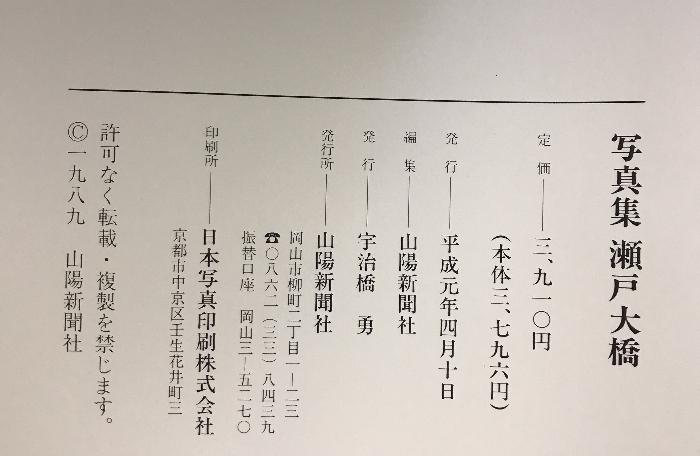 写真集 瀬戸大橋
定価——三、九一〇円
（本体三、七九六円）
発行——平成元年四月十日
編集——山陽新聞社
発行——宇治橋 勇
発行所——山陽新聞社
岡山市柳町二丁目一ー二三
☎〇八六二（三三）八四三九
振替口座 岡山三ー五二七〇
印刷所——日本写真印刷株式会社
京都市中京区壬生花井町三
許可なく転載・複製を禁じます。
©一九八九 山陽新聞社